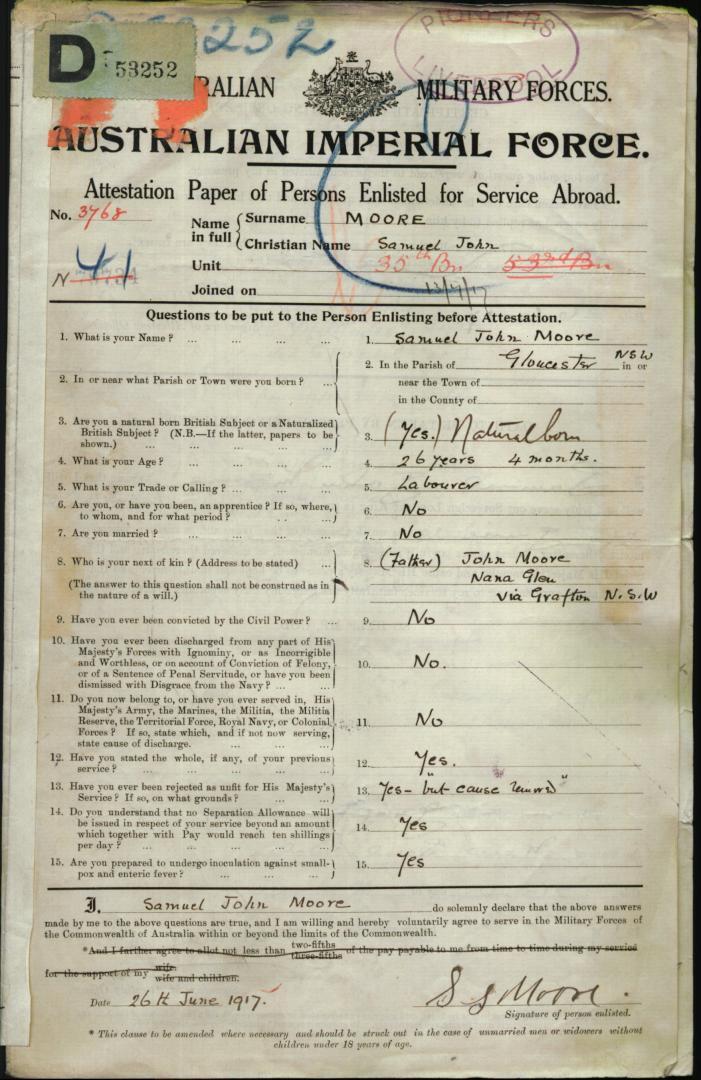 53252
D 53252
PIONEERS
LIVERPOOL
AUSTRALIAN MILITARY FORCES.
AUSTRALIAN IMPERIAL FORCE.
Attestation Paper of Persons Enlisted for Service Abroad.
No. 3768
Name in full { Surname MOORE
Christian Name Samuel John
Unit 35th Bn 53rd Bn
N 41
Joined on 13/7/17
Questions to be put to the Person Enlisting before Attestation.
1. What is your Name? ... ... ... ... 1. Samuel John Moore
2. In or near what Parish or Town were you born? ... 2. In the Parish of Gloucester NSW in or
near the Town of
in the County of
3. Are you a natural born British Subject or a Naturalized
British Subject? (N.B.—If the latter, papers to be
shown.) ... ... ... ... 3. (Yes.) Natural born
4. What is your Age? ... ... ... ... 4. 26 years 4 months.
5. What is your Trade or Calling? ... ... ... 5. Labourer
6. Are you, or have you been, an apprentice? If so, where,
to whom, and for what period? ... ... 6. No
7. Are you married? ... ... ... ... 7. No
8. Who is your next of kin? (Address to be stated) ... 8. (Father) John Moore
Nana Glen
(The answer to this question shall not be construed as in
the nature of a will.) via Grafton N.S.W
9. Have you ever been convicted by the Civil Power? ... 9. No
10. Have you ever been discharged from any part of His
Majesty's Forces with Ignominy, or as Incorrigible
and Worthless, or on account of Conviction of Felony,
or of a Sentence of Penal Servitude, or have you been
dismissed with Disgrace from the Navy? ... ... 10. No.
11. Do you now belong to, or have you ever served in, His
Majesty's Army, the Marines, the Militia, the Militia
Reserve, the Territorial Force, Royal Navy, or Colonial
Forces? If so, state which, and if not now serving,
state cause of discharge. ... ... ... 11. No
12. Have you stated the whole, if any, of your previous
service? ... ... ... ... ... 12. Yes.
13. Have you ever been rejected as unfit for His Majesty's
Service? If so, on what grounds? ... ... 13. Yes - "but cause removed"
14. Do you understand that no Separation Allowance will
be issued in respect of your service beyond an amount
which together with Pay would reach ten shillings
per day? ... ... ... ... ... 14. Yes
15. Are you prepared to undergo inoculation against small-
pox and enteric fever? ... ... ... 15. Yes
I, Samuel John Moore do solemnly declare that the above answers
made by me to the above questions are true, and I am willing and hereby voluntarily agree to serve in the Military Forces of
the Commonwealth of Australia within or beyond the limits of the Commonwealth.
*And I further agree to allot not less than two-fifths three-fifths of the pay payable to me from time to time during my service
for the support of my wife wife and children.
Date 26th June 1917. S J Moore.
Signature of person enlisted.
* This clause to be amended where necessary and should be struck out in the case of unmarried men or widowers without
children under 18 years of age.